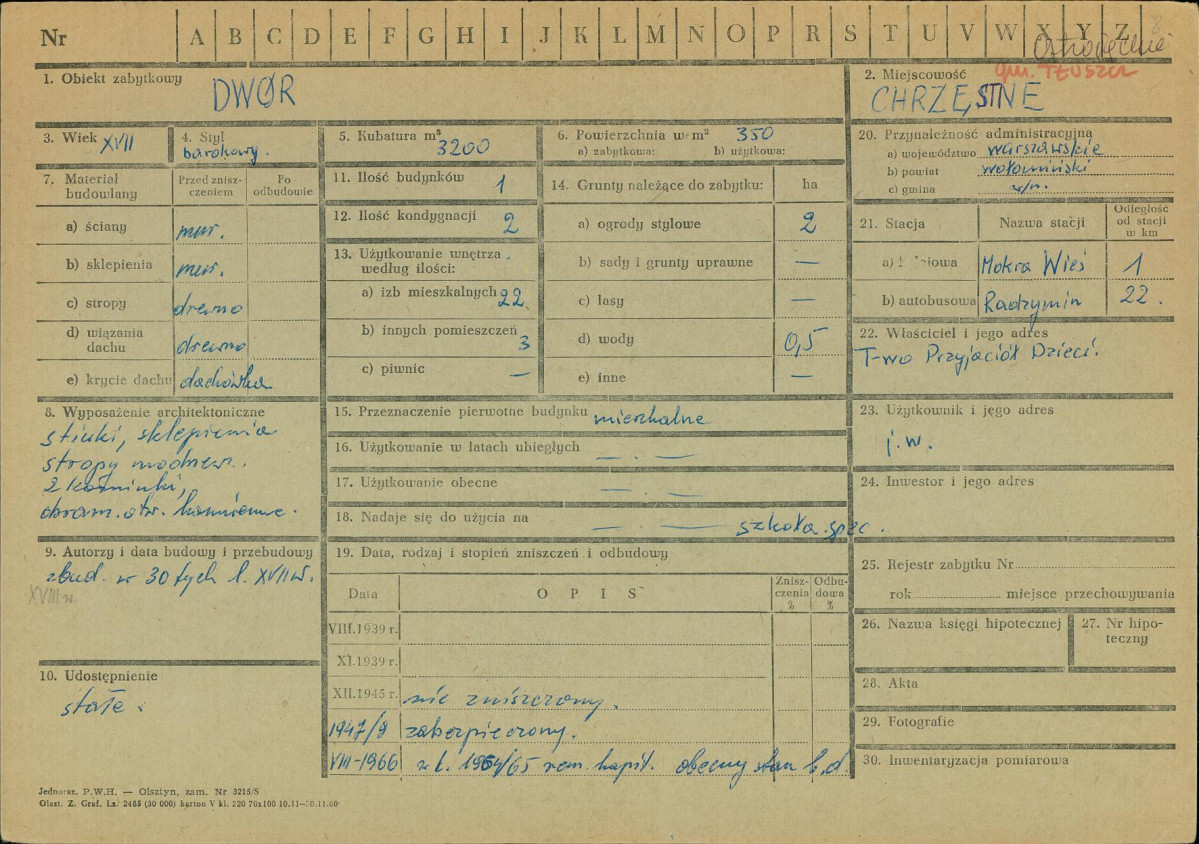 Nr A B C D E F G H I J K L M N O P R S T U V W X Y Z
8
gm. TŁUSZCZ
1. Obiekt zabytkowy
DWÓR
2. Miejscowość
CHRZĘSTNE
3. Wiek XVII
4. Styl
barokowy.
5. Kubatura m³
3200
6. Powierzchnia w m² 350
a) zabytkowa: b) użytkowa:
7. Materiał budowlany
Przed zniszczeniem
Po odbudowie
a) ściany mur.
b) sklepienia mur.
c) stropy drewno
d) wiązania dachu drewno
e) krycie dachu dachówka
8. Wyposażenie architektoniczne
stiuki, sklepienia
stropy modrzew.
2 kominki,
obram. otw. kamienne.
9. Autorzy i data budowy i przebudowy
zbud. w 30 tych l. XVII w.
XVIII w.
10. Udostępnienie
stałe.
11. Ilość budynków 1
12. Ilość kondygnacji 2
13. Użytkowanie wnętrza
według ilości:
a) izb mieszkalnych 22
b) innych pomieszczeń 3
c) piwnic —
14. Grunty należące do zabytku: ha
a) ogrody stylowe 2
b) sady i grunty uprawne —
c) lasy —
d) wody 0,5
e) inne —
15. Przeznaczenie pierwotne budynku mieszkalne
16. Użytkowanie w latach ubiegłych — . —
17. Użytkowanie obecne — . —
18. Nadaje się do użycia na — . — szkoła spec.
19. Data, rodzaj i stopień zniszczeń i odbudowy
Data OPIS Zniszczenia % Odbudowa %
VIII.1939 r.
XI.1939 r.
XII.1945 r. nie zniszczony.
1947/9 zabezpieczony.
VIII-1966 w l. 1964/65 rem. kapit. obecny stan b.d.
20. Przynależność administracyjna
a) województwo warszawskie
b) powiat wołomiński
c) gmina w/m.
21. Stacja
Nazwa stacji
Odległość od stacji w km
a) Mokra Wieś 1
b) autobusowa Radzymin 22.
22. Właściciel i jego adres
T-wo Przyjaciół Dzieci.
23. Użytkownik i jego adres
j.w.
24. Inwestor i jego adres
25. Rejestr zabytku Nr
rok miejsce przechowywania
26. Nazwa księgi hipotecznej
27. Nr hipoteczny
28. Akta
29. Fotografie
30. Inwentaryzacja pomiarowa
Jednoraz. P.W.H. — Olsztyn, zam. Nr 3215/S
Olszt. Z. Graf. Lz. 2465 (30 000) karton V kl. 220 70x100 10.11—30.11.60